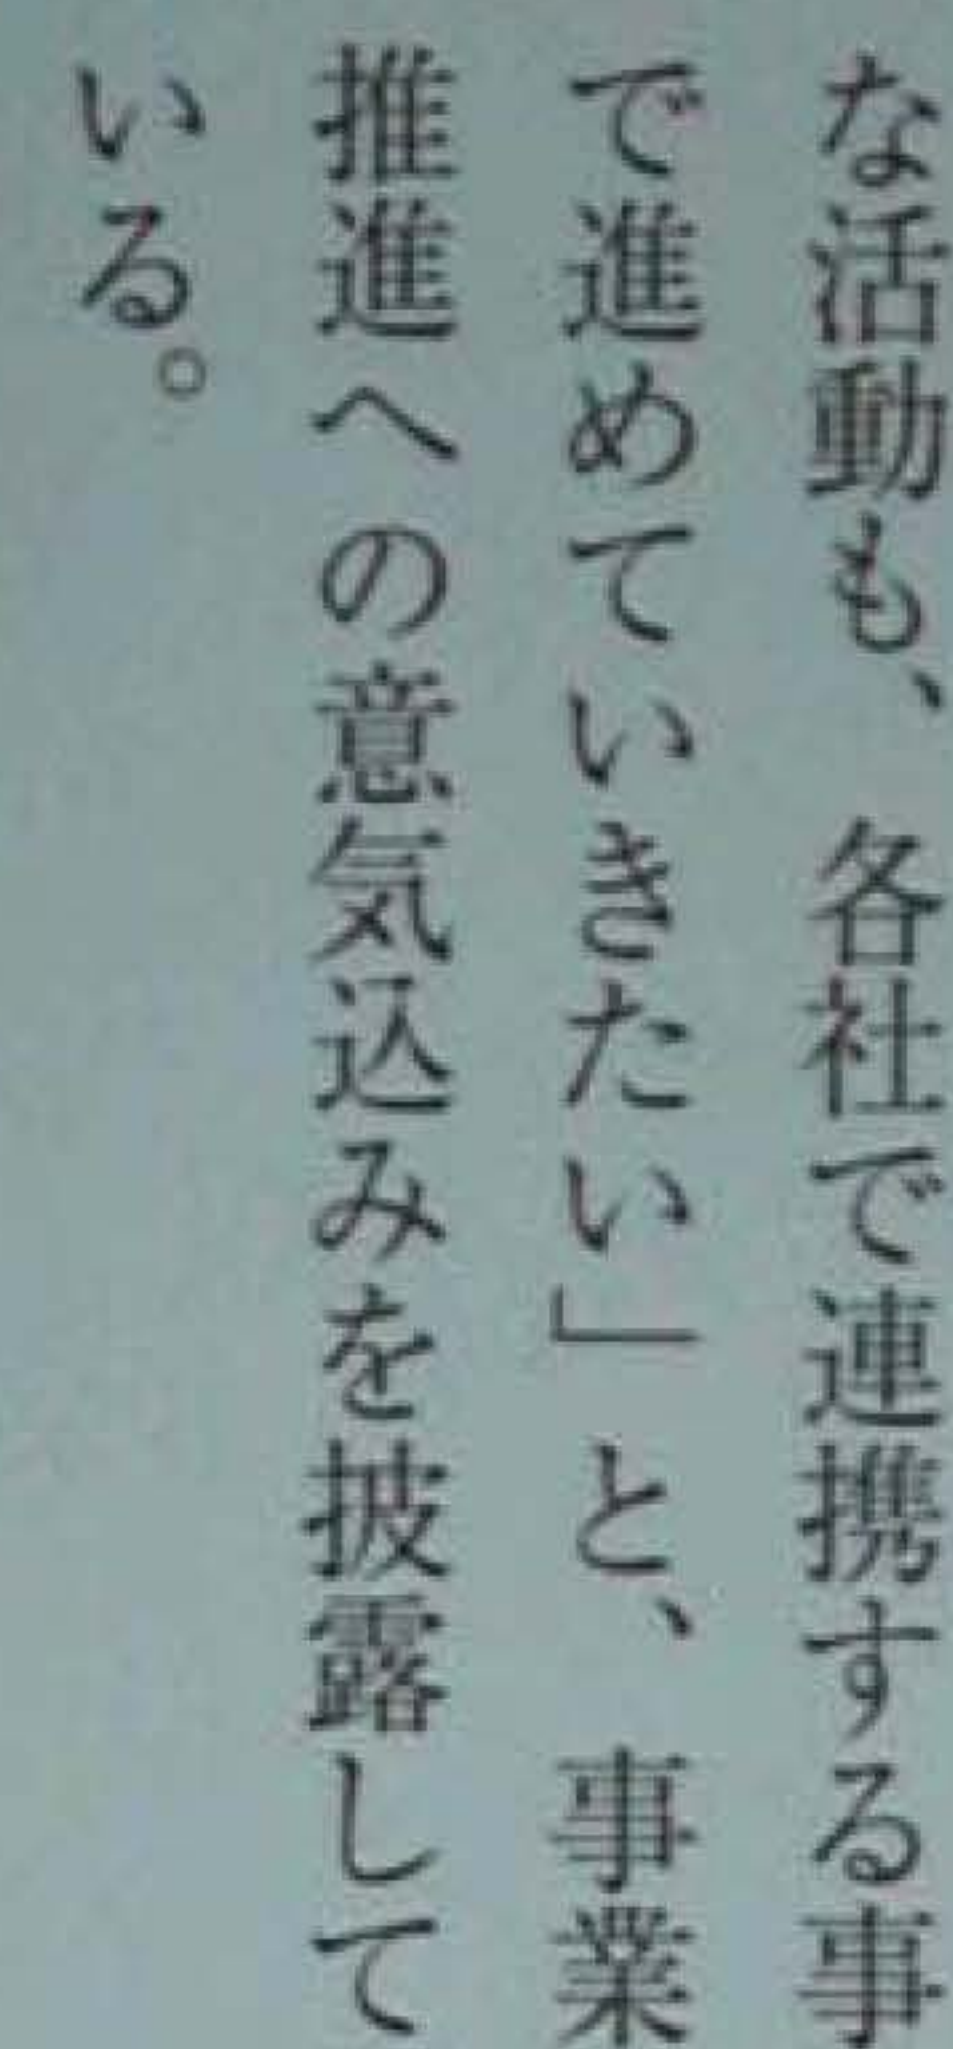 な活動も、各社で連携する事
で進めていきたい」と、事業
推進への意気込みを披露して
いる。